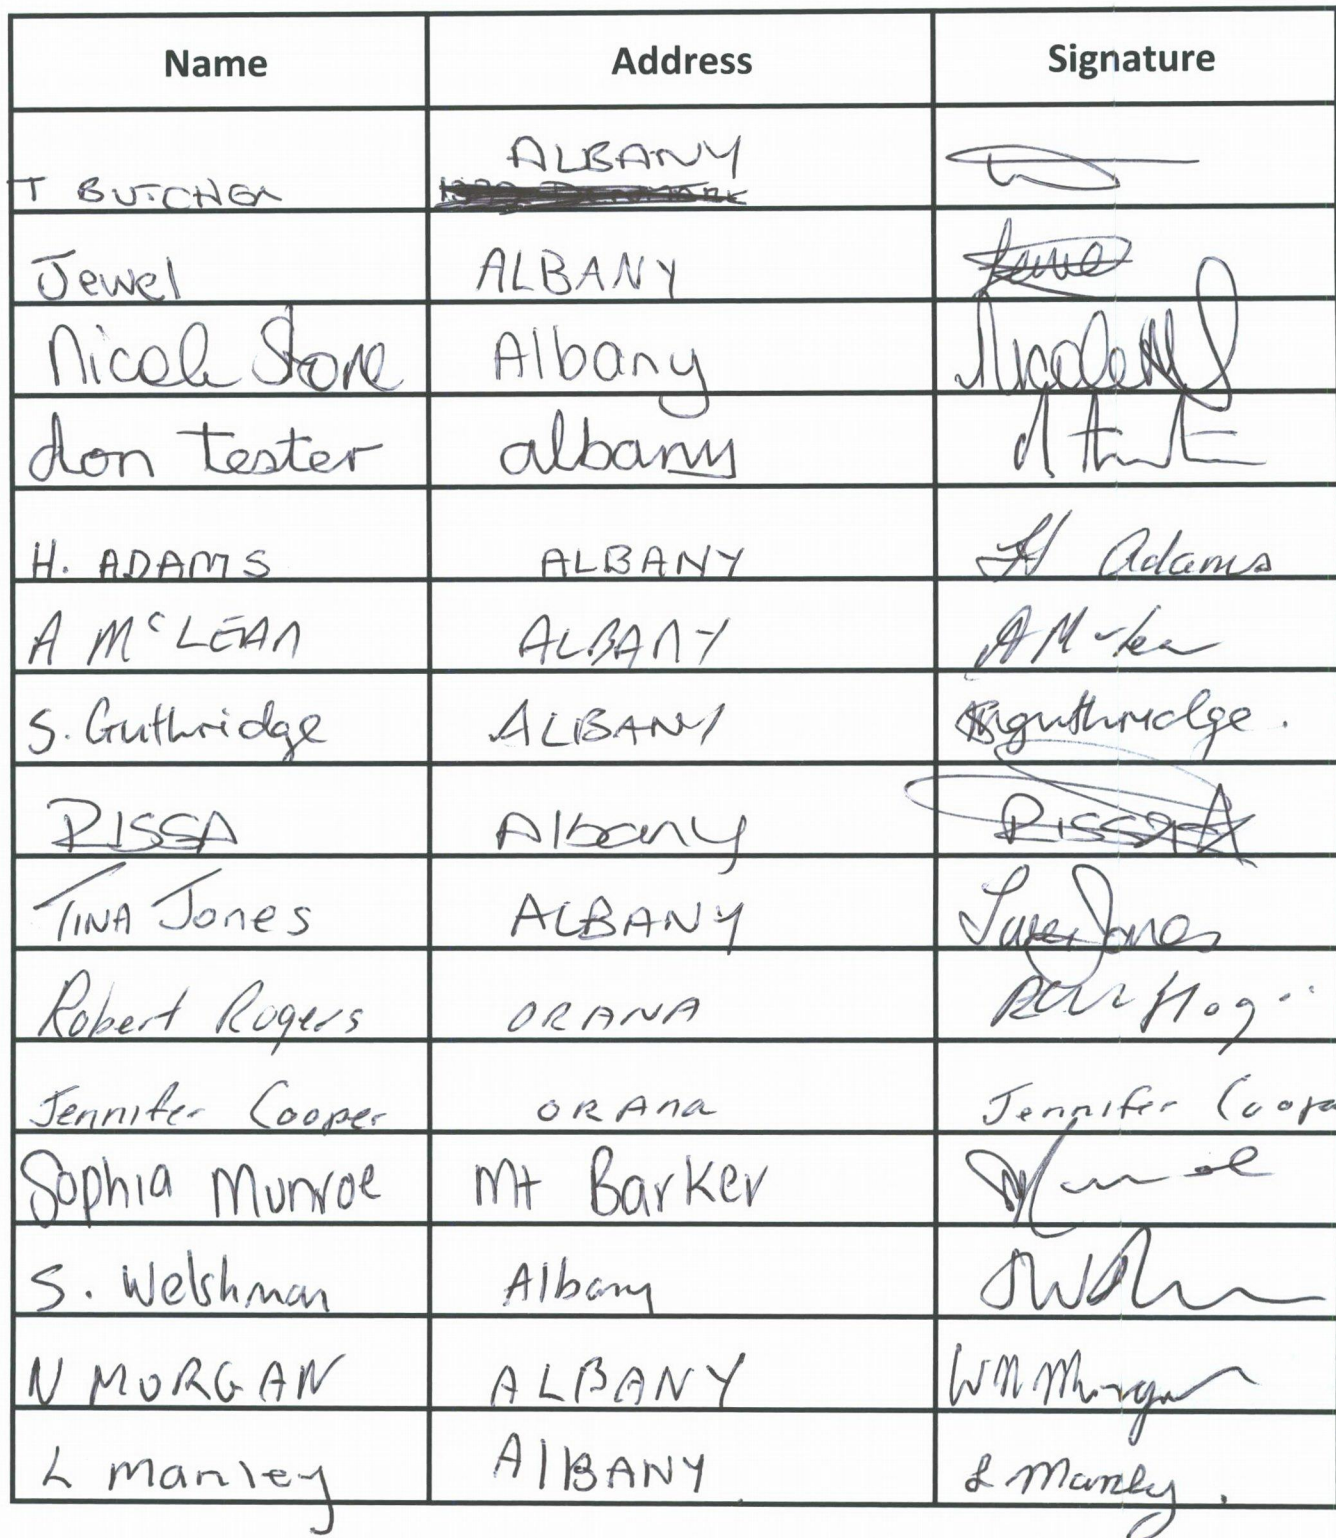 Name Address Signature
T BUTCHER ALBANY
Jewel ALBANY
Nicole Stone Albany
don tester albany
H. ADAMS ALBANY H Adams
A McLEAN ALBANY
S. Guthridge ALBANY Sguthridge.
RISSA Albany RISSA
TINA Jones ALBANY Jones
Robert Rogers ORANA
Jennifer Cooper ORANA Jennifer Coope
Sophia Munroe Mt Barker
S. Welshman Albany
N MORGAN ALBANY WNMorgan
L Manley AlBANY L Manley.